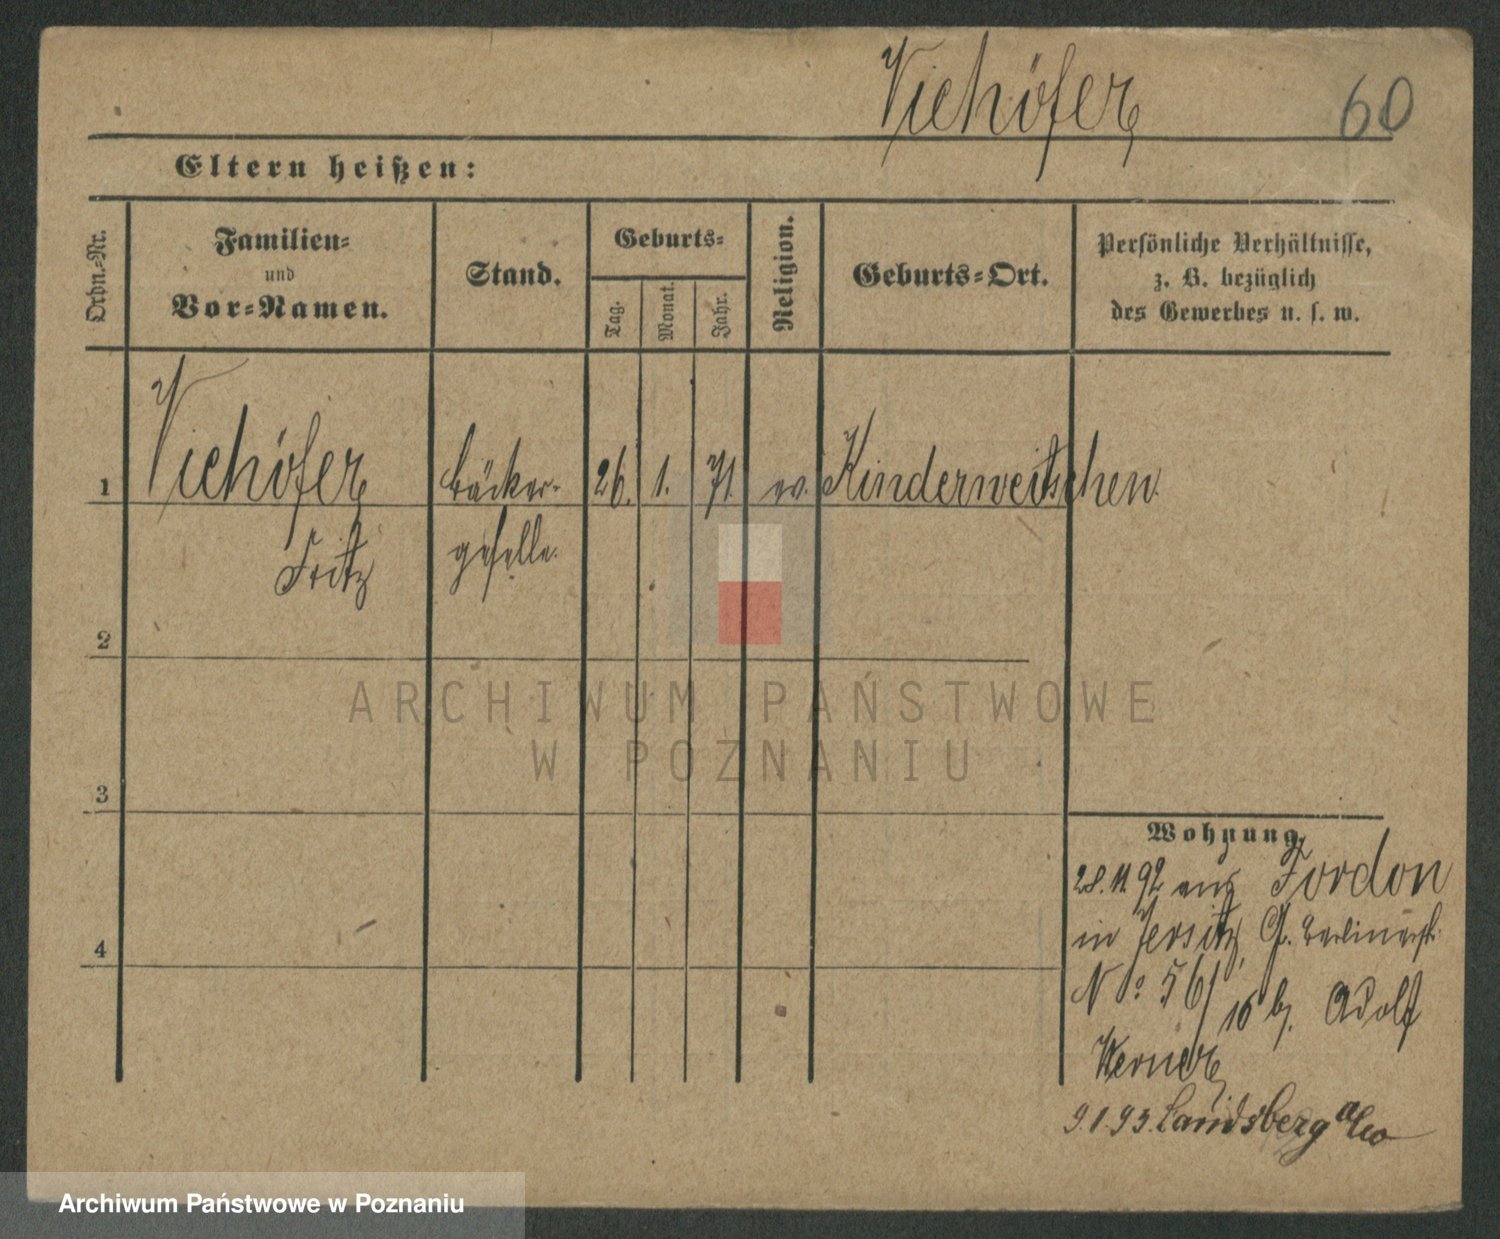 Viehöfer 60
Eltern heißen:
Ordn.-Nr.
Familien-
und
Vor-Namen.
Stand.
Geburts-
Tag.
Monat.
Jahr.
Religion.
Geburts-Ort.
Persönliche Verhältnisse,
z. B. bezüglich
des Gewerbes u. s. w.
1 Viehöfer Bäcker- 26. 1. 71. ev. Kinderweitschen
Fritz geselle.
2
ARCHIWUM PAŃSTWOWE
W POZNANIU
3
Wohnung
28.11 92 aus Fordon
in Jersitz, Gr. Berlinerstr.
No 56/
16 b. Adolf
Werner
9.1.93. Landsberg a/W
4
Archiwum Państwowe w Poznaniu